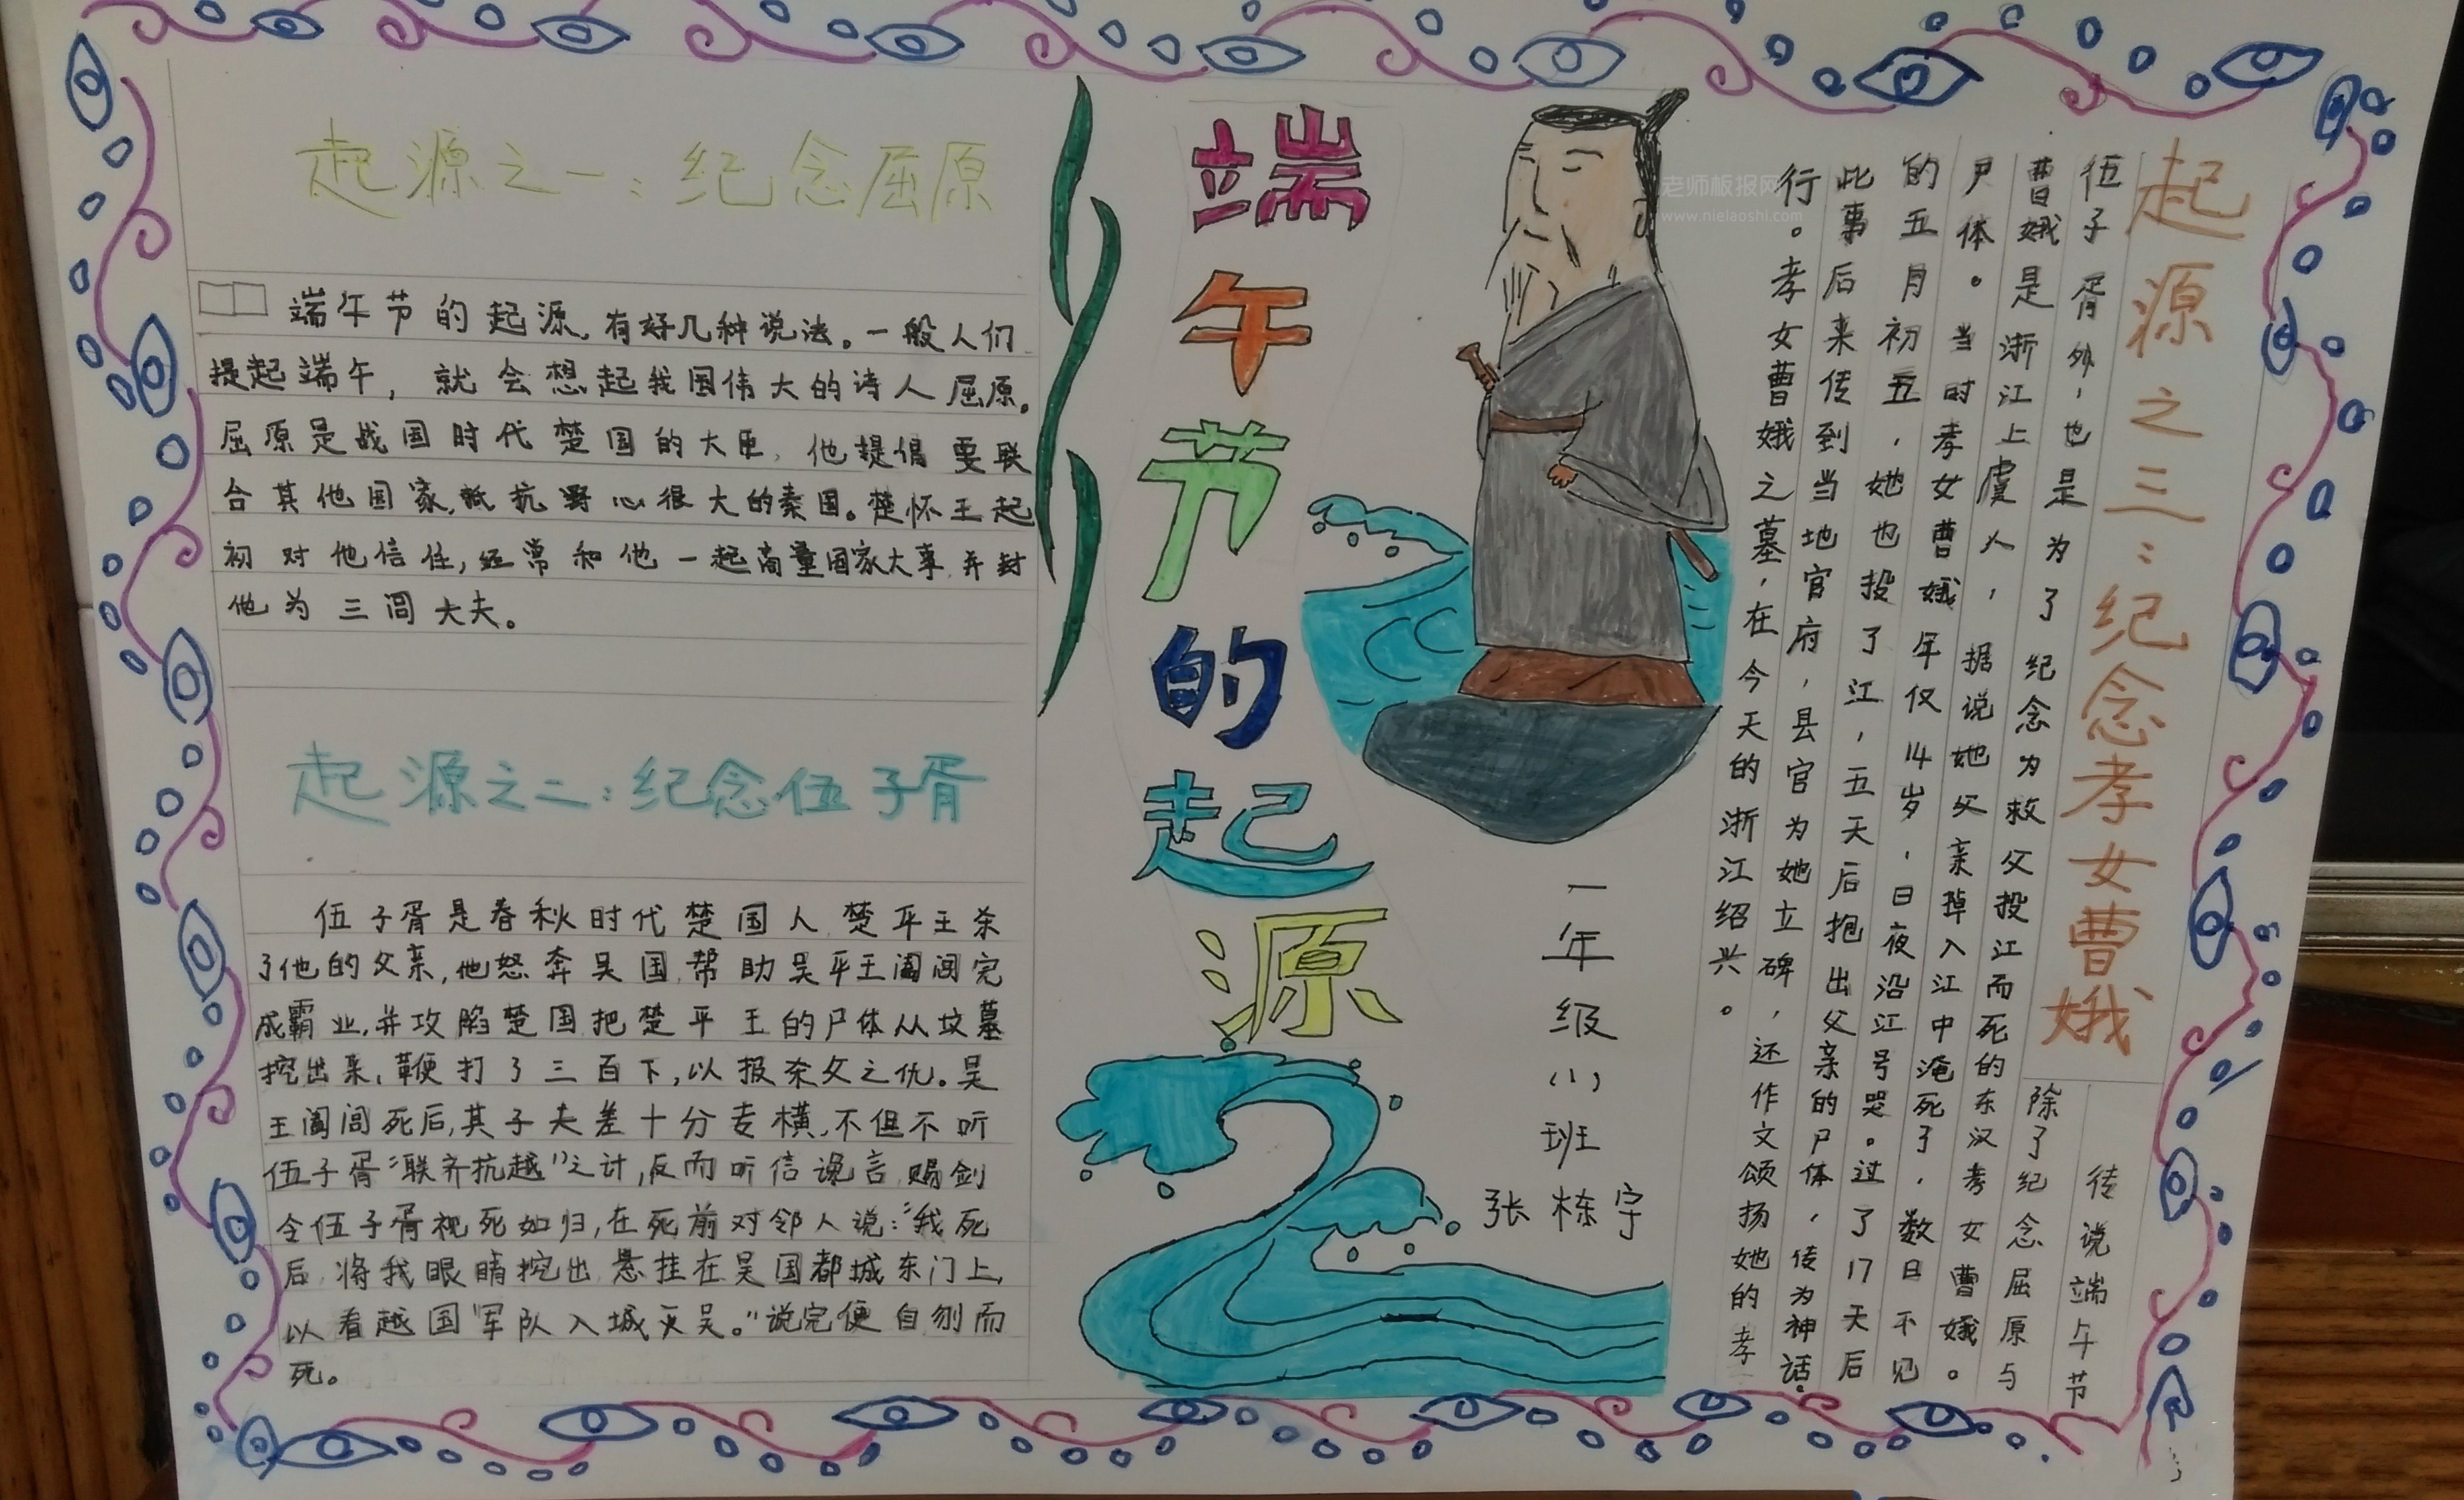 起源之一：纪念屈原
端午节的起源，有好几种说法。一般人们
提起端午，就会想起我国伟大的诗人屈原。
屈原是战国时代楚国的大臣，他提倡要联
合其他国家，抵抗野心很大的秦国。楚怀王起
初对他信任，经常和他一起商量国家大事，并封
他为三闾大夫。
起源之二：纪念伍子胥
伍子胥是春秋时代楚国人，楚平王杀
了他的父亲，他怒奔吴国，帮助吴平王阖闾完
成霸业，并攻陷楚国把楚平王的尸体从坟墓
挖出来，鞭打了三百下，以报杀父之仇。吴
王阖闾死后，其子夫差十分专横，不但不听
伍子胥“联齐抗越”之计，反而听信谗言，赐剑
令伍子胥视死如归，在死前对邻人说：“我死
后，将我眼睛挖出悬挂在吴国都城东门上，
以看越国军队入城灭吴。”说完便自刎而
死。
端午节的起源
一年级(1)班
张栋宇
起源之三：纪念孝女曹娥
传说端午节
除了纪念屈原与
伍子胥外，也是为了纪念为救父投江而死的东汉孝女曹娥。
曹娥是浙江上虞人，据说她父亲掉入江中淹死了，数日不见
尸体。当时孝女曹娥年仅14岁，日夜沿江号哭。过了17天后
的五月初五，她也投了江，五天后抱出父亲的尸体，传为神话。
此事后来传到当地官府，县官为她立碑，还作文颂扬她的孝
行。孝女曹娥之墓，在今天的浙江绍兴。
老师板报网
www.nielaoshi.com